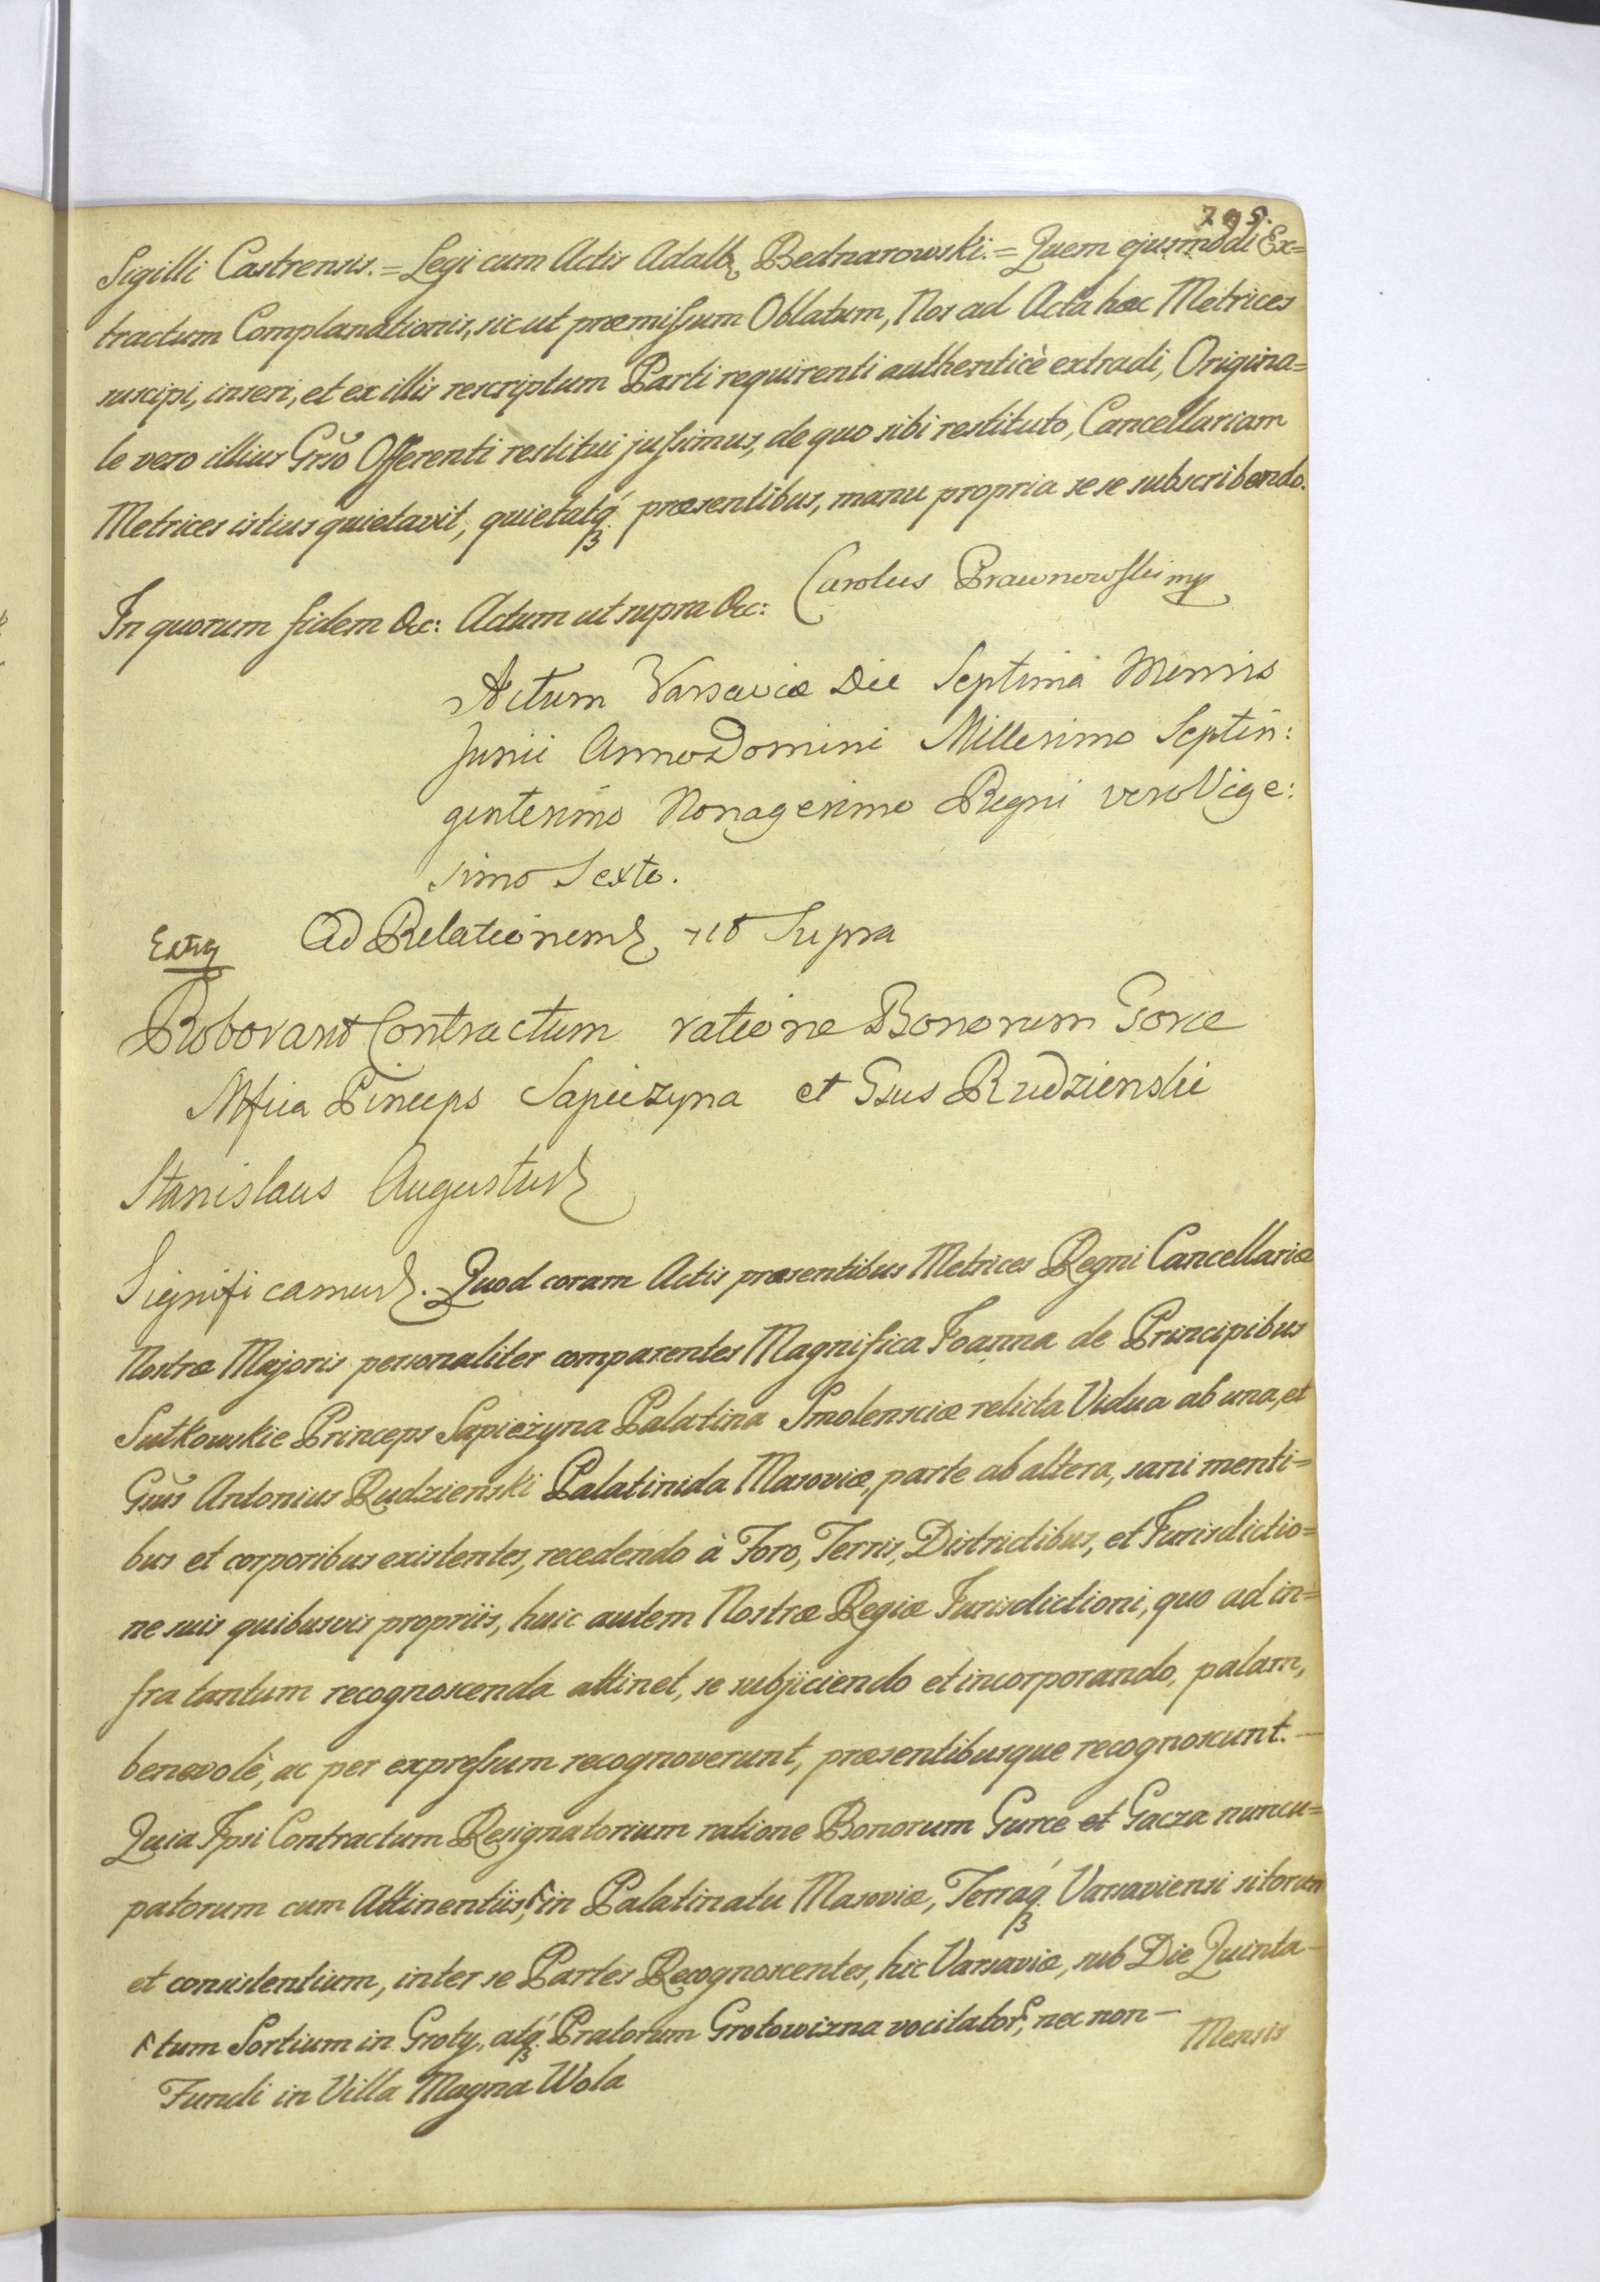 795.
Sigilli Castrensis. = Legi cum Actis Adalb Bednarowski. = Quem ejusmodi Ex=
tractum Complanationis, sicut præmissum Oblatum, Nos ad Acta hæc Metrices
suscipi, inseri, et ex illis rescriptum Parti requirenti authenticè extradi, Origina=
le vero illius Gnso Offerenti restitui jussimus, de quo sibi restituto, Cancellariam
Metrices istius quietavit, quietatq́ præsentibus, manu propria se se subscribendo.
In quorum fidem &c: Actum ut supra &c: Carolus Prawnowski mp
Actum Varsaviæ Die Septima Mensis
Junii Anno Domini Millesimo Septin:
gentesimo Nonagesimo Regni vero Vige:
simo Sexto.
Ad Relationem ut Supra
Roborant Contractum ratione Bonorum Gorce
Mfica Pinceps Sapiezyna et Gsus Rudzienski
Stanislaus Augustus
Significamus. Quod coram Actis præsentibus Metrices Regni Cancellariæ
Nostræ Majoris personaliter comparentes Magnifica Joanna de Principibus
Sułkowskie Princeps Sapieżyna Palatina Smolensciæ relicta Vidua ab una, et
Gsus Antonius Rudzienski Palatinida Masoviæ, parte ab altera, sani menti=
bus et corporibus existentes, recedendo à Foro, Terris, Districtibus, et Jurisdictio=
ne suis quibusvis propriis, huic autem Nostræ Regiæ Jurisdictioni, quo ad in=
fra tantum recognoscenda attinet, se subjiciendo et incorporando, palam,
benevolè, ac per expressum recognoverunt, præsentibusque recognoscunt. —
Quia Ipsi Contractum Resignatorium ratione Bonorum Gurce et Gacza nuncu=
patorum cum Attinentiis, in Palatinatu Masoviæ, Terraq́ Varsaviensi sitorum
et consistentium, inter se Partes Recognoscentes, hic Varsaviæ, sub Die Quinta —
tum Sortium in Groty, atq́ Pratorum Grotowizna vocitator, nec non —
Mensis
Fundi in Villa Magna Wola